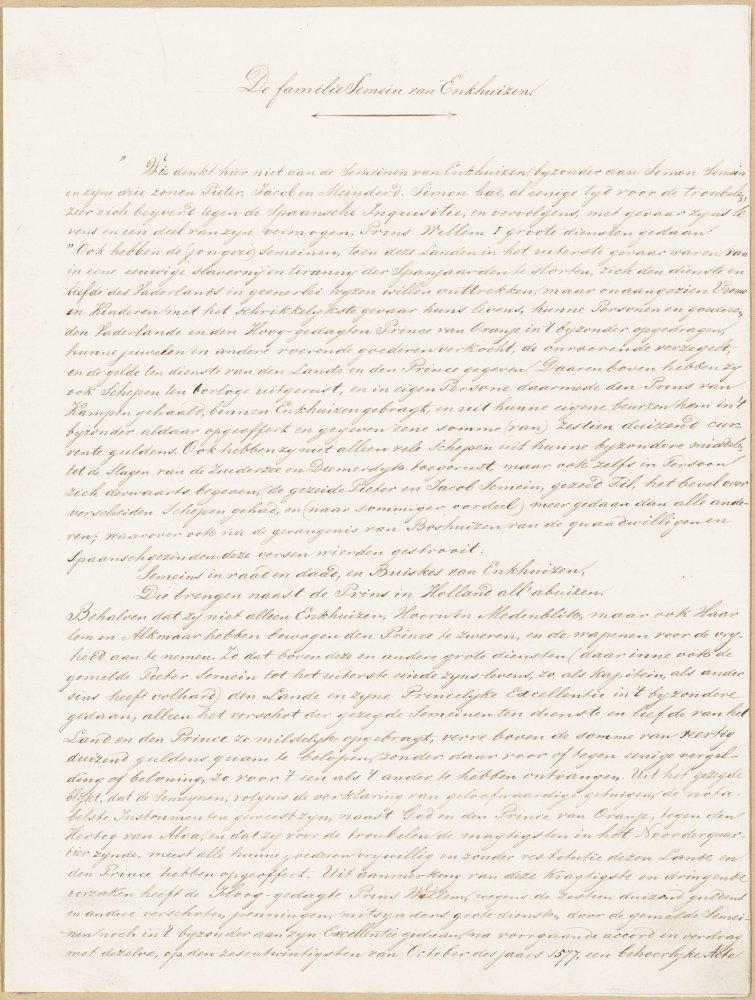 De familie Semein van Enkhuizen.
" Wie denkt hier niet aan de Semeinen van Enkhuizen, byzonder aan Simon Semein
en zyne drie zonen Pieter, Jacob en Meinderd. Simon had, al eenige tyd voor de troubelen,
zeer zich beyverd tegen de Spaansche Inquisitie, en vervolgens, met gevaar zyns le
vens en een deel van zyn vermogen, Prins Willem I groote diensten gedaan."
" Ook hebben de (jongere) Semeinen, toen deze Landen in het uiterste gevaar waren, van
in eene eeuwige slavernij en tiranny der Spanjaarden te storten, zich den dienst en
liefde des Vaderlands in geenerlei wyzen willen onttrekken, maar onaangezien Vrouw
en Kinderen, met het schrikkelykste gevaar huns levens, hunne Personen en goederen,
den Vaderlande en den Hoog-gedagten Prince van Oranje in't byzonder opgedragen,
hunne juwelen en andere roerende goederen verkocht, de onroerende verzegelt,
en de gelde ten dienste van den Lande en den Prince gegeven. Daarenboven hebben zy
ook Schepen ten oorloge uitgerust, en in eigen Persone daarmede den Prins van
Kampen gehaald, binnen Enkhuizen gebragt, en uit hunne eigene beurzen hem in't
byzonder aldaar opgeoffert en gegeven eene somme (van) zestien duizend cur
rente guldens. Ook hebben zy niet alleen vele Schepen uit hunne byzondere middelen,
tot de Slagen van de Zuiderzee en Diemerdyk toegerust, maar ook zelfs in Persoon
zich derwaarts begeven, de gezeide Pieter en Jacob Semein, gezeid Fil, het bevel over
verscheiden Schepen gehad, en (naar sommiger oordeel) meer gedaan dan alle ande-
ren; waarover ook na de gevangenis van Boshuizen van de quaadwilligen en
Spaanschgezinden deze versen wierden gestrooit:
Semeins in raad en daad, en Buiskes van Enkhuizen,
Die brengen naast de Prins in Holland all' abuizen.
Behalven dat zy niet alleen Enkhuizen, Hoorn en Medenblik, maar ook Haar
lem en Alkmaar hebben bewogen den Prince te zweren, en de wapenen voor de vry-
heid aan te nemen. Zo dat boven deze en andere grote diensten (daar inne ook de
gemelde Pieter Semein tot het uiterste einde zyns levens, zo als Kapitein, als ander
sins heeft volhard) den Lande en zyne Princelyke Excellentie in't byzondere
gedaan, alleen het verschot der gezegde Semeinen ten dienste en liefde van het
Land en den Prince zo mildelyk opgebragt, verre boven de somme van veertig
duizend guldens quam te belopen, zonder daar voor of tegen eenige vergel-
ding of beloning, zo voor 't een als 't ander te hebben ontvangen. Uit het gezegde
blykt, dat de Semeynen, volgens de verklaring van geloofwaardige getuigen, de nota-
belste Instrumenten geweest zyn, naast God en den Prince van Oranje, tegen den
Hertog van Alva, en dat zy voor de troubelen de magtigsten in het Noorderquar-
tier zynde, meest alle hunne goederen vrywillig en zonder restitutie dezen Lande en
den Prince hebben opgeoffert. Uit aanmerking van deze kragtigste en dringende
oorzaken heeft de Hoog-gedagte Prins Willem, wegens de zestien duizend guldens
en andere verschoten penningen, mitsgaders grote diensten, door de gemelde Semei-
nen noch in't byzonder aan zyn Excellentie gedaan, na voorgaande accord en verdrag
met dezelve, op den zesentwintigsten van October des jaars 1577, een behoorlyke Acte